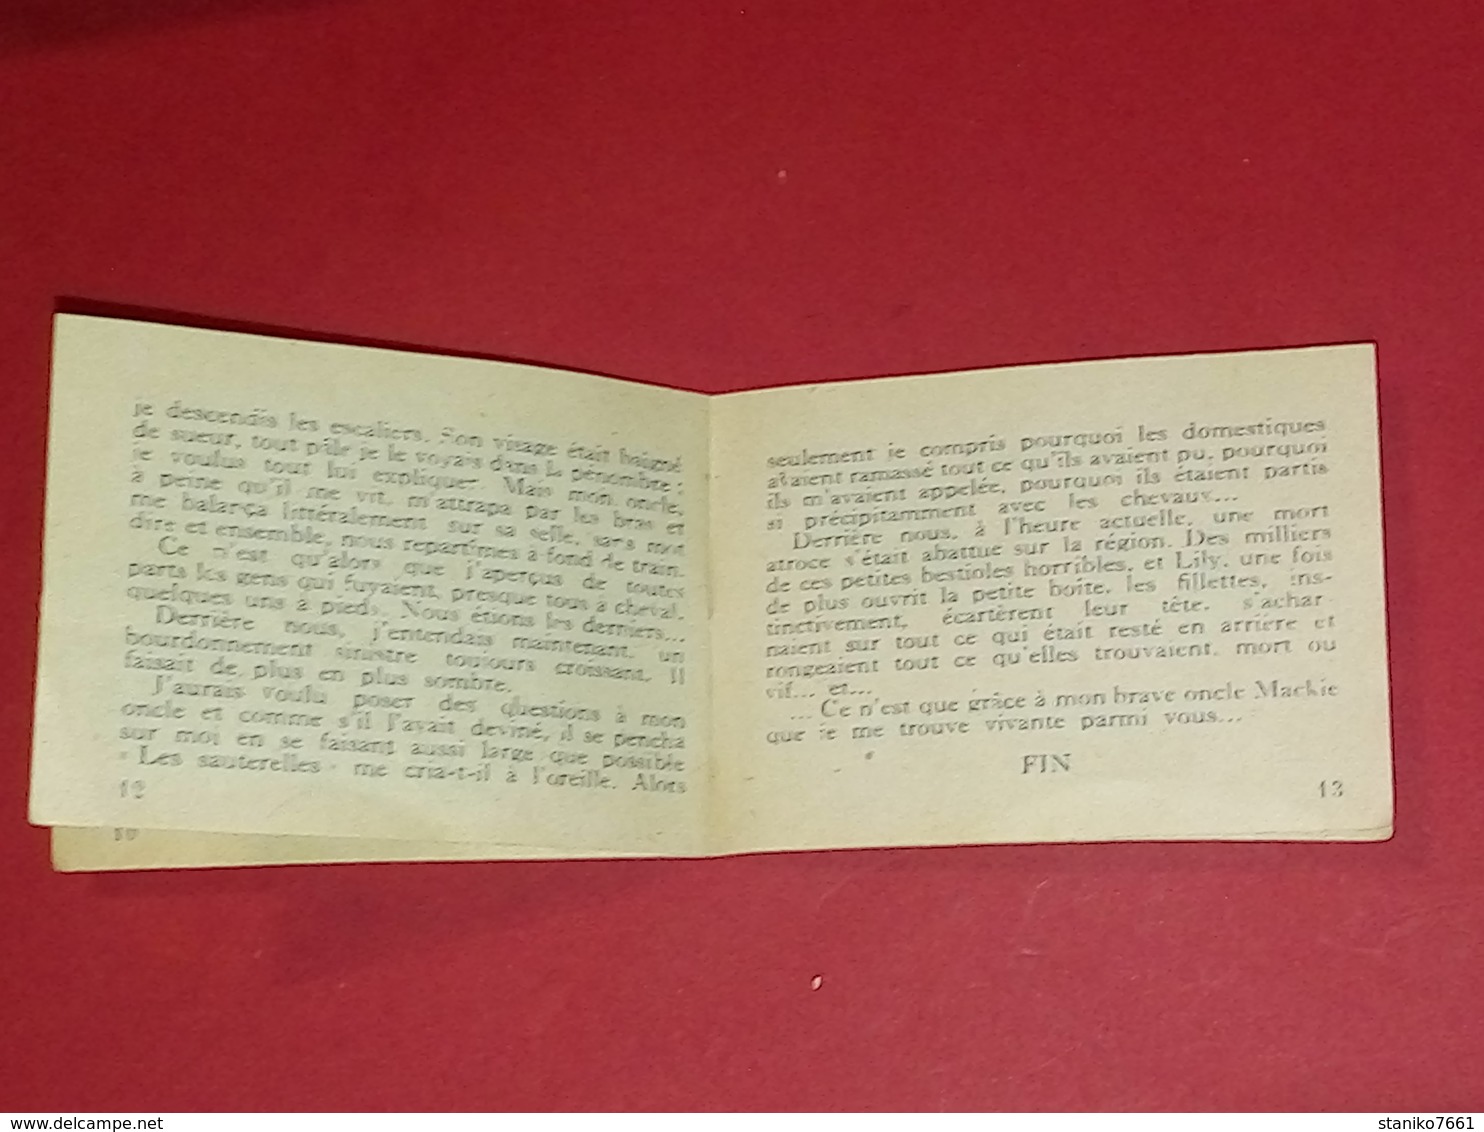 je descendis les escaliers. Son visage était baigné
de sueur, tout pâle je le voyais dans la pénombre ;
je voulus tout lui expliquer. Mais mon oncle,
à peine qu'il me vit, m'attrapa par les bras et
me balança littéralement sur sa selle, sans mot
dire et ensemble, nous repartîmes à fond de train.
Ce n'est qu'alors que j'aperçus de toutes
parts les gens qui fuyaient, presque tous à cheval,
quelques uns à pieds. Nous étions les derniers...
Derrière nous, j'entendais maintenant, un
bourdonnement sinistre toujours croissant. Il
faisait de plus en plus sombre.
J'aurais voulu poser des questions à mon
oncle et comme s'il l'avait deviné, il se pencha
sur moi en se faisant aussi large que possible
« Les sauterelles » me cria-t-il à l'oreille. Alors
12
10
seulement je compris pourquoi les domestiques
avaient ramassé tout ce qu'ils avaient pu, pourquoi
ils m'avaient appelée, pourquoi ils étaient partis
si précipitamment avec les chevaux...
Derrière nous, à l'heure actuelle, une mort
atroce s'était abattue sur la région. Des milliers
de ces petites bestioles horribles, et Lily, une fois
de plus ouvrit la petite boîte, les fillettes, ins-
tinctivement, écartèrent leur tête, s'achar-
naient sur tout ce qui était resté en arrière et
rongeaient tout ce qu'elles trouvaient, mort ou
vif... et...
... Ce n'est que grâce à mon brave oncle Mackie
que je me trouve vivante parmi vous...
FIN
13
delcampe.net
staniko7661